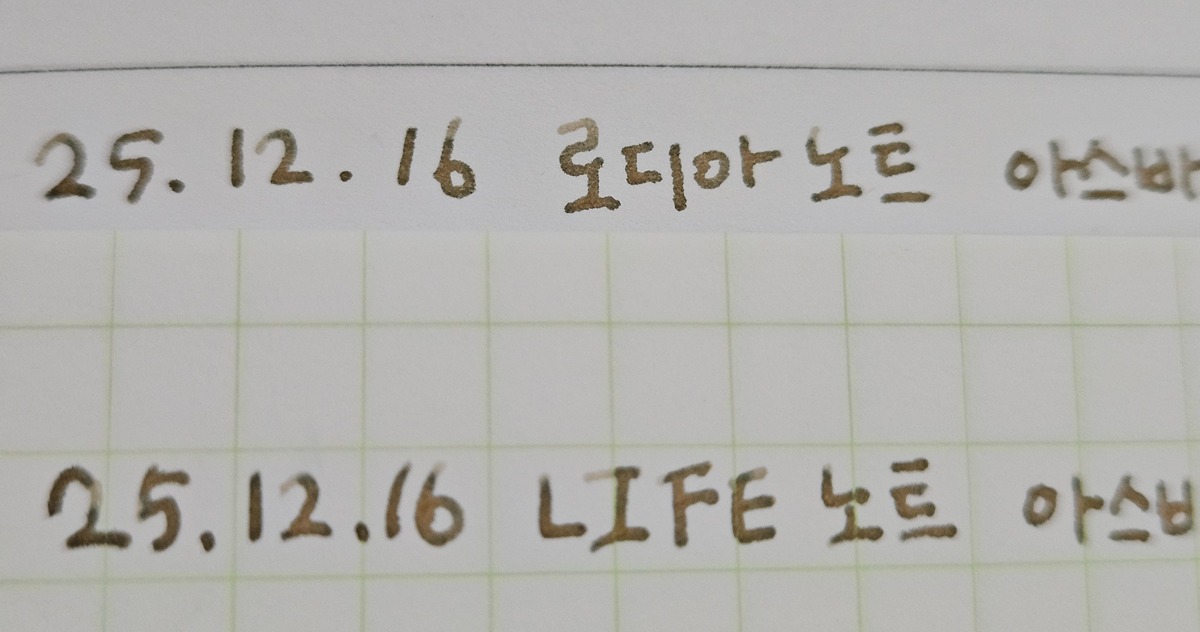 25.12.16 로디아 노트 아스바
25.12.16 LIFE 노트 아스